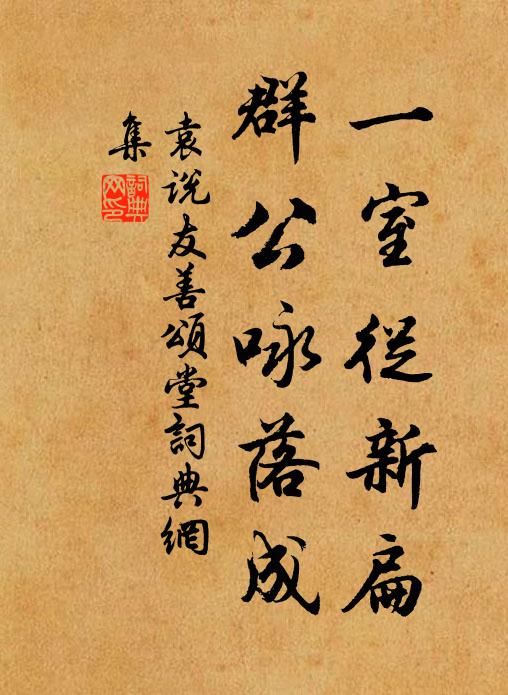 一室從新扁
群公咏落成
袁说友善頌堂詞典網
集
詞典
网印